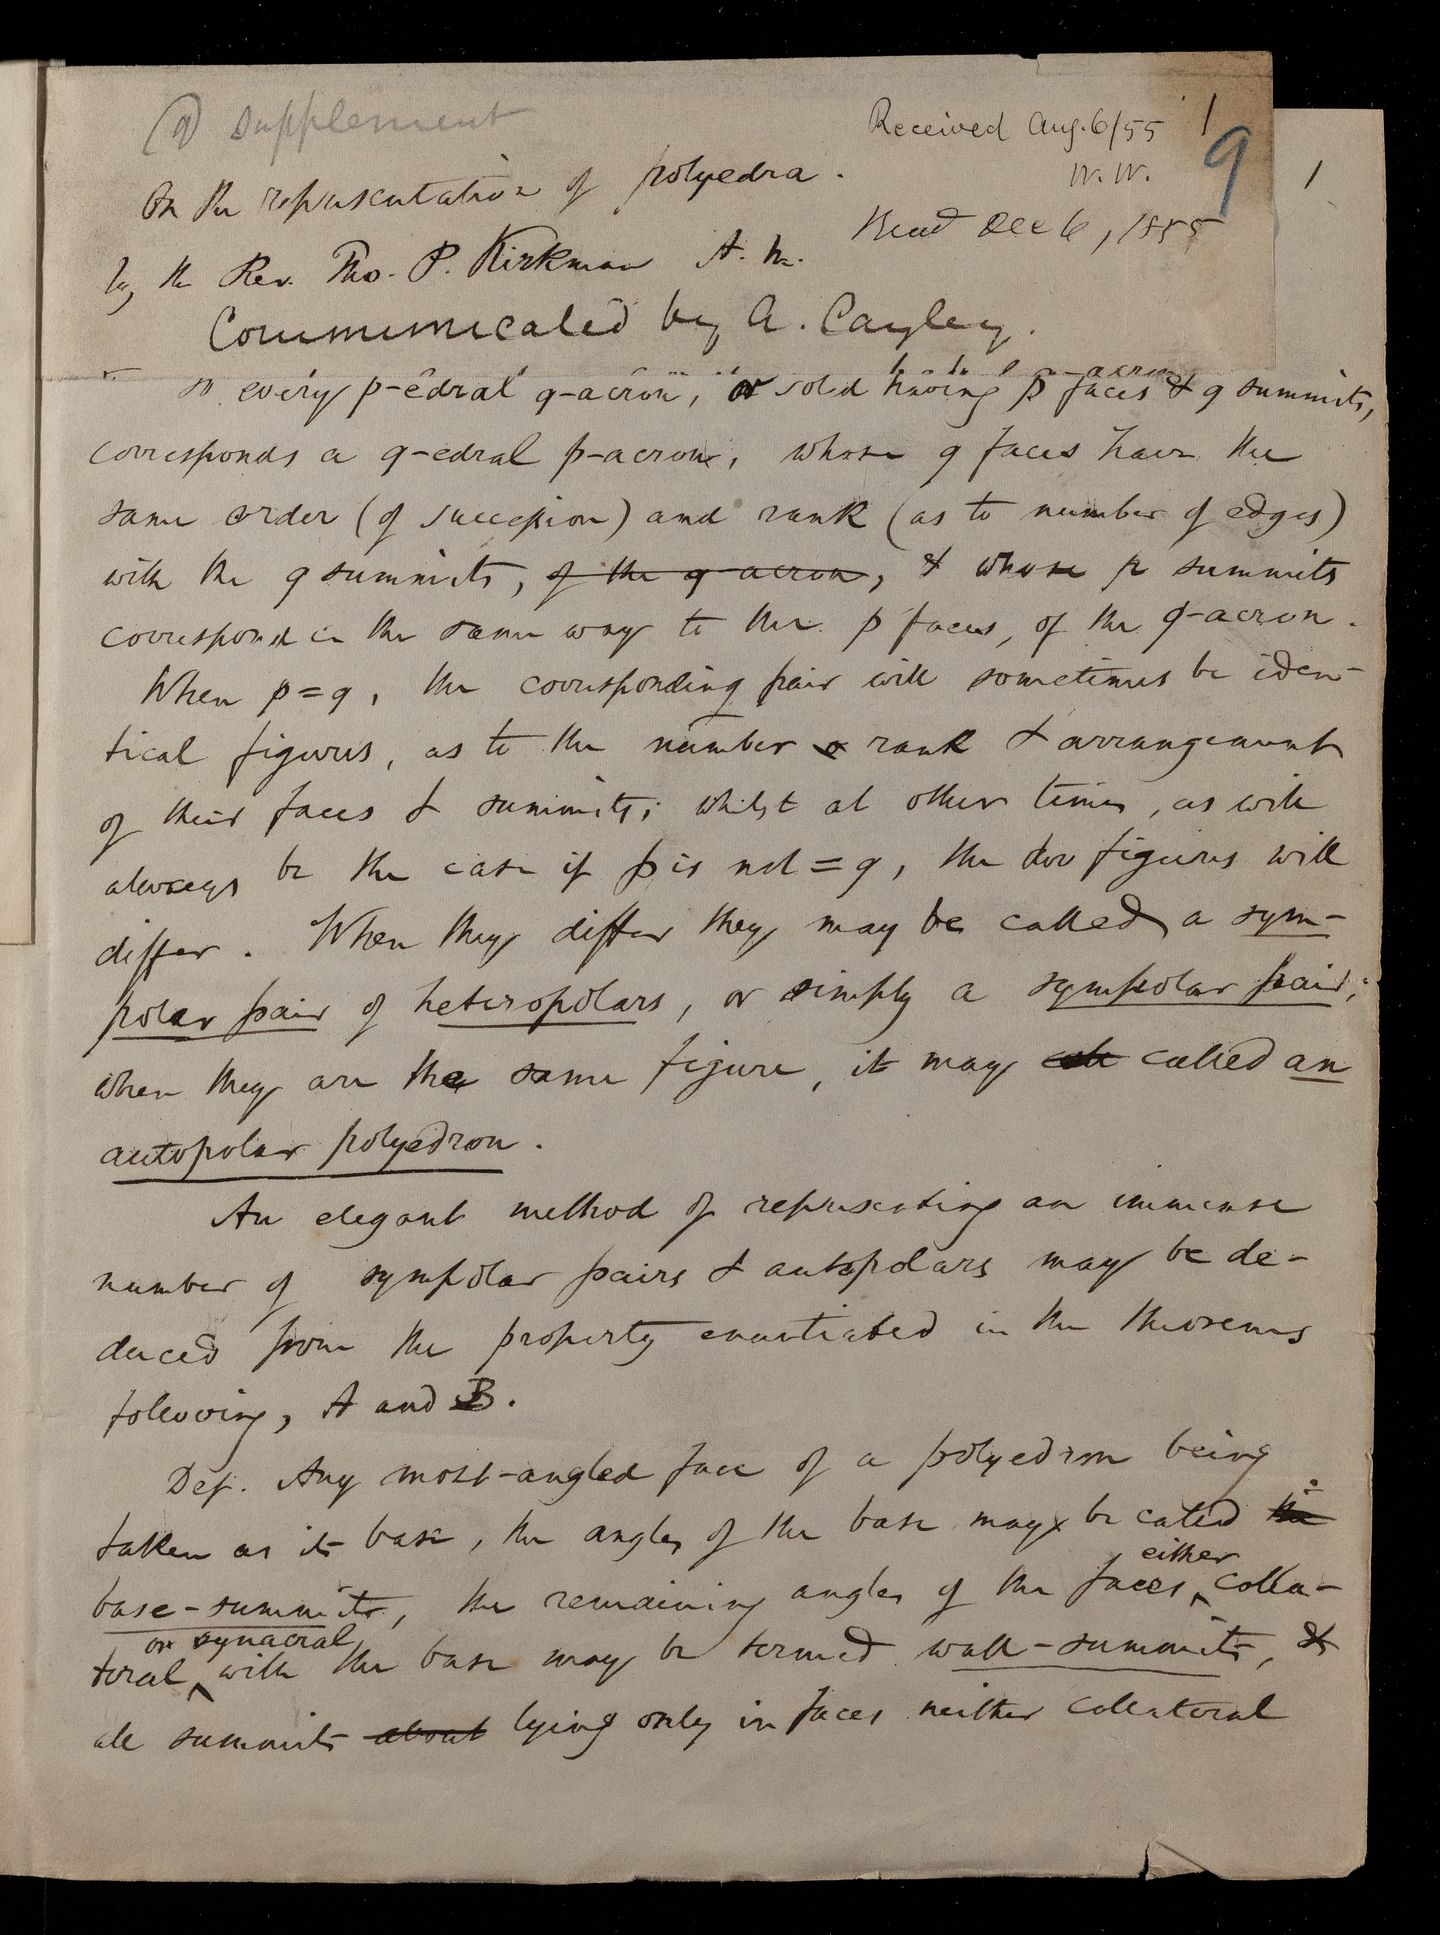 supplement
Received Aug. 6/55 1
9
W. W.
1
On the representation of polyedra.
Read Dec 6, 1855
by the Rev. Tho. P. Kirkman A. M.
Communicated by A. Cayley.
To every p-edral q-acron, or solid having p faces & q summits,
corresponds a q-edral p-acron, whose q faces have the
same order (of succession) and rank (as to number of edges)
with the q summits, of the q-acron, & whose p summits
correspond in the same way to the p faces, of the q-acron.
When p=q, the corresponding pair will sometimes be iden-
tical figures, as to the number rank & arrangement
of their faces & summits; whilst at other times, as will
always be the case if p is not = q, the two figures will
differ. When they differ they may be called a sym-
polar pair of heteropolars, or simply a sympolar pair;
when they are the same figure, it may called an
autopolar polyedron.
An elegant method of representing an immense
number of sympolar pairs & autopolars may be de-
duced from the property enuntiated in the theorems
following, A and B.
Def. Any most-angled face of a polyedron being
taken as its base, the angles of the base may be called the
base-summits, the remaining angles of the faces either colla-
teral or synacral with the base may be termed wall-summits, &
all summits about lying only in faces neither collateral